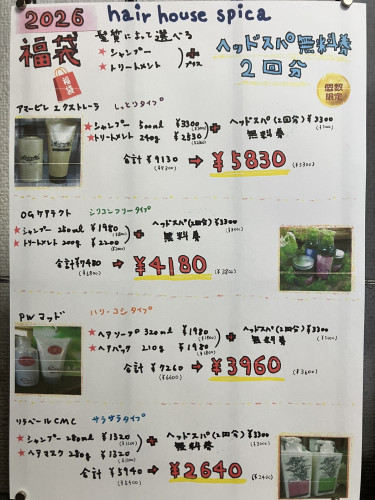 2026 hair house spica
福袋
髪質によって選べる
★シャンプー
★トリートメント
+
プラス
ヘッドスパ無料券
2回分
福袋
個数限定
アマービレ エクストレーラ しっとりタイプ
★シャンプー 500ml ¥3300
★トリートメント 240g ¥2530
+ ヘッドスパ(2回分)¥3300
無料券
合計 ¥9130 → ¥5830 (¥5300)
OGケアテクト シリコンフリータイプ
★シャンプー 250ml ¥1980 (1800)
★トリートメント 200g ¥2200
+ ヘッドスパ(2回分)¥3300
無料券
合計 ¥7480 → ¥4180 (¥3800)
PWマッド ハリ・コシタイプ
★ヘアソープ 320ml ¥1980 (1800)
★ヘアパック 210g ¥1980
+ ヘッドスパ(2回分)¥3300
無料券
合計 ¥7260 (¥6600) → ¥3960 (¥3600)
リラベールCMC サラサラタイプ
★シャンプー 280ml ¥1320
★ヘアマスク 280g ¥1320
+ ヘッドスパ(2回分)¥3300
無料券
合計 ¥5940 (¥5400) → ¥2640 (¥2400)